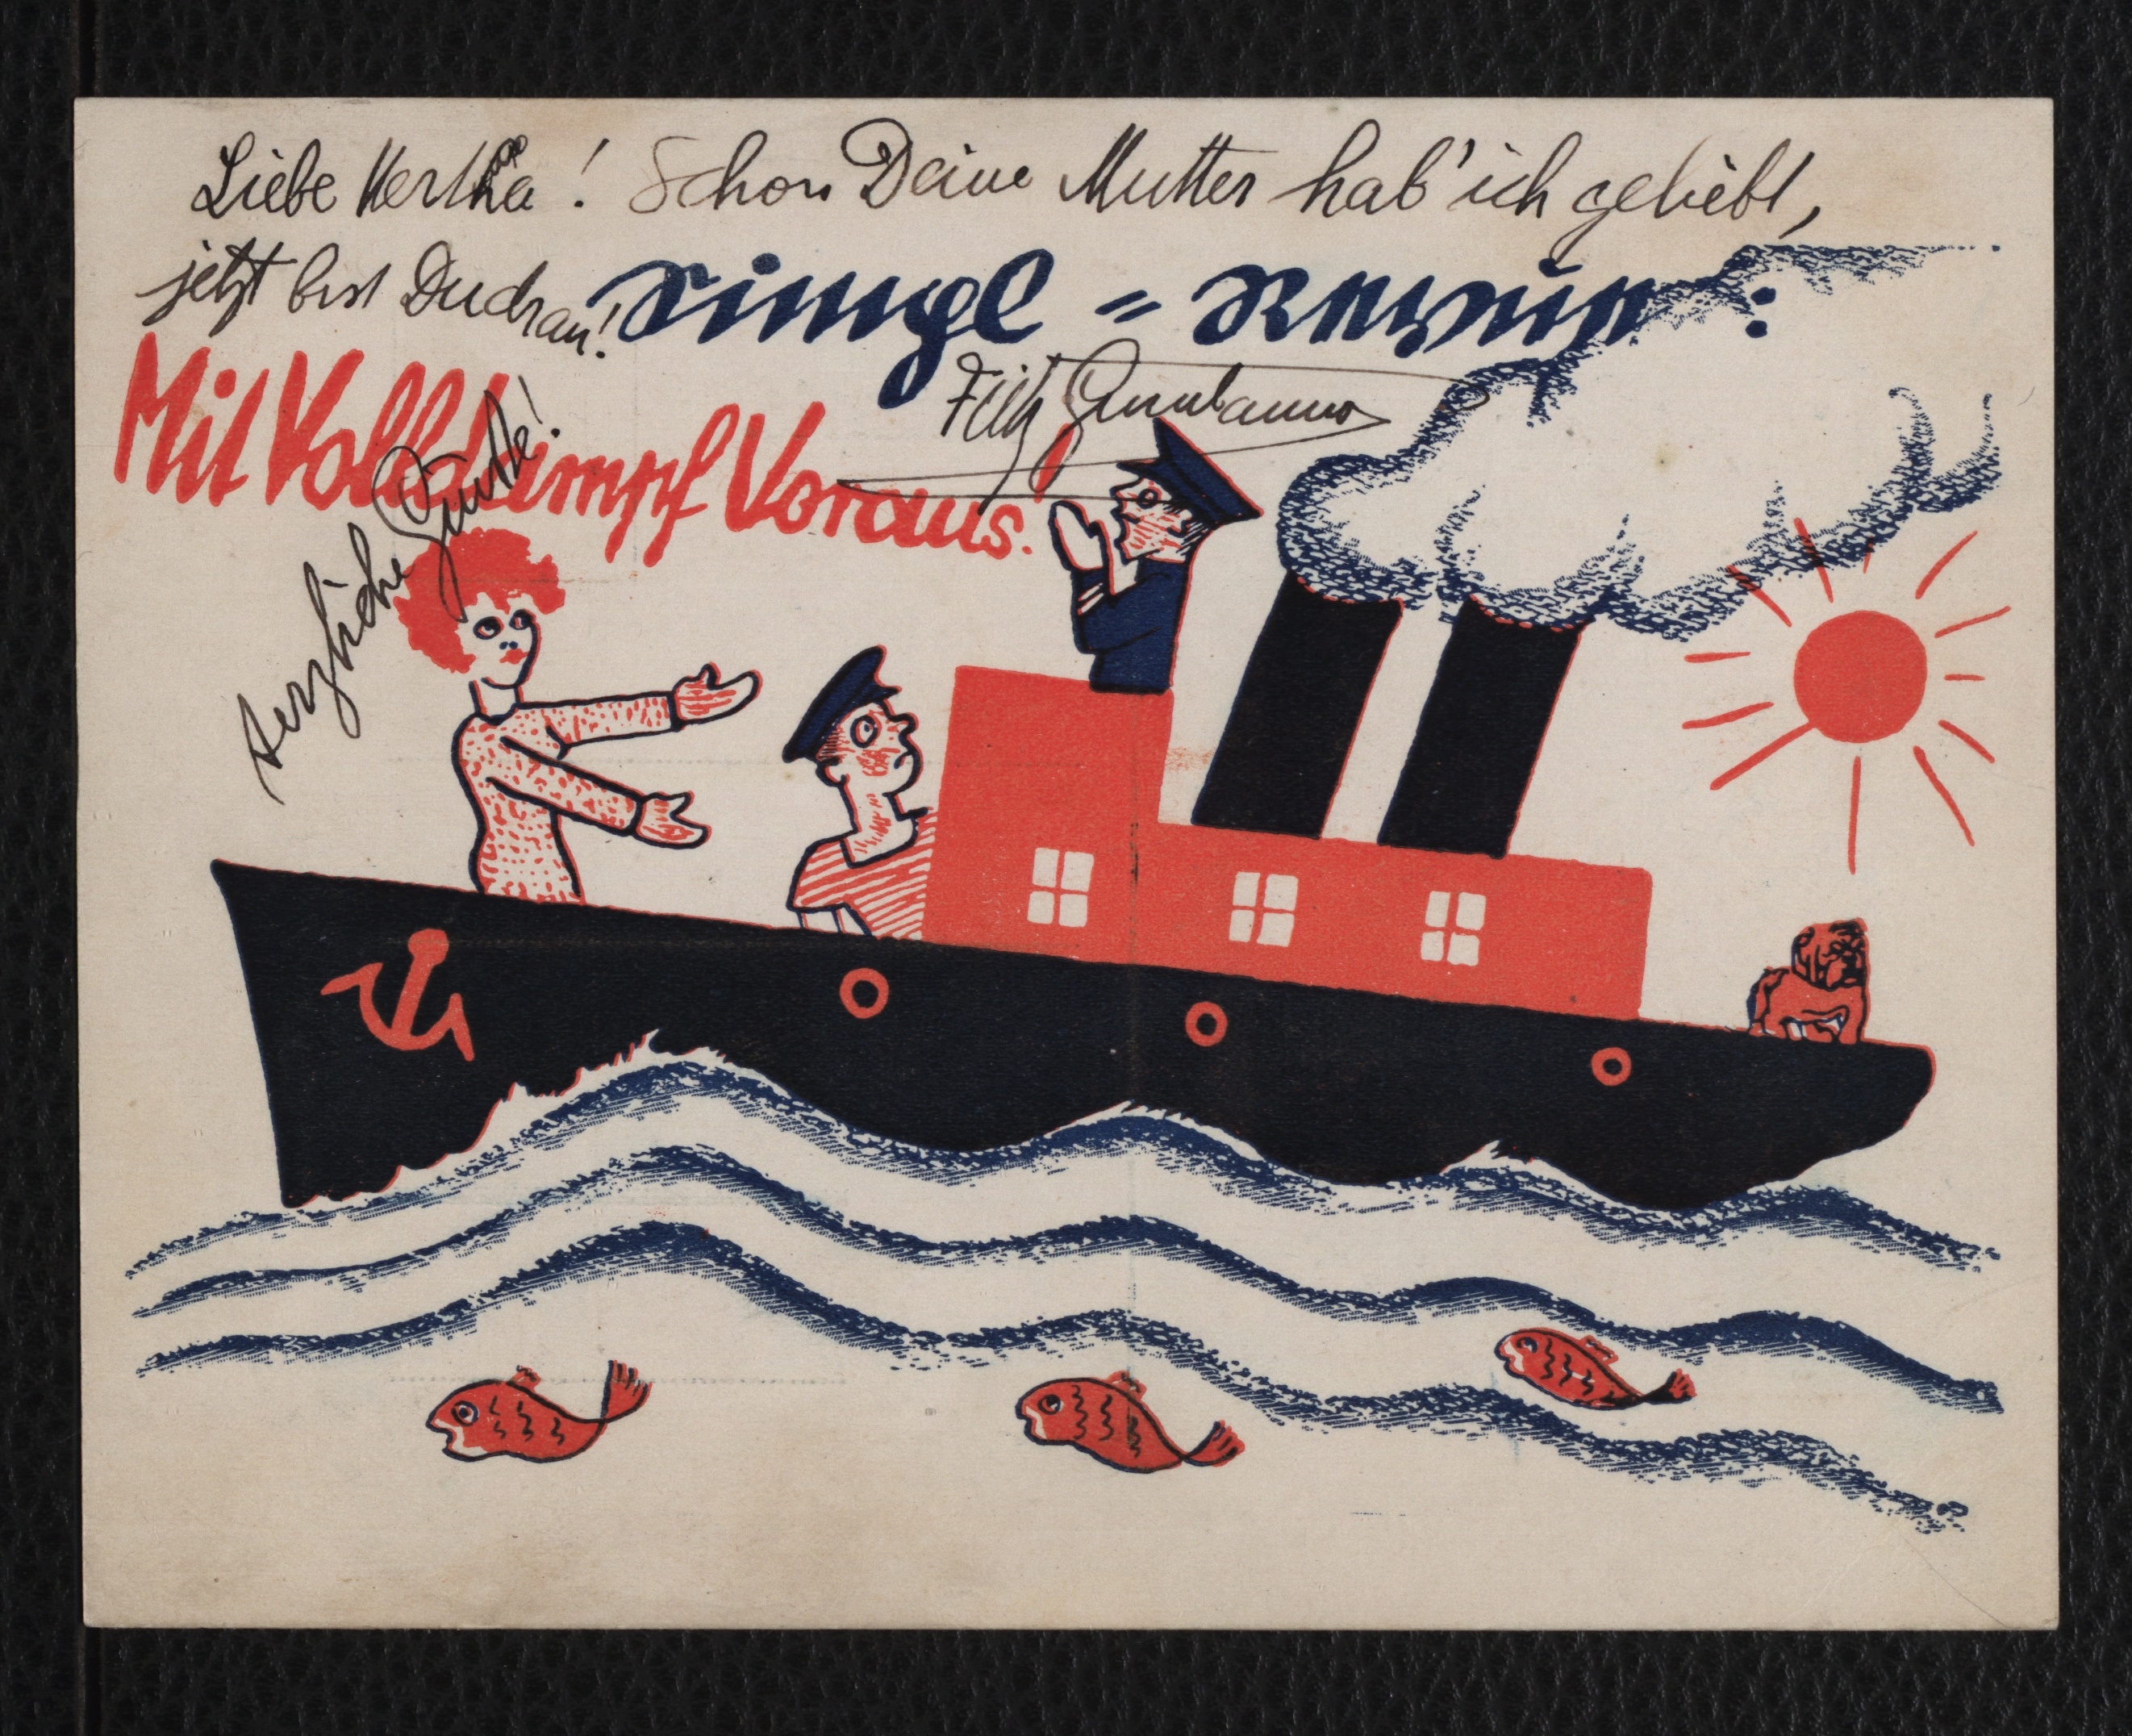 Liebe Hertha! Schon Deine Mutter hab' ich geliebt,
jetzt bist Du dran!
Simpl = Revue :
Fritz Grünbaum
Mit Volldampf Voraus!
Herzliche Grüße!